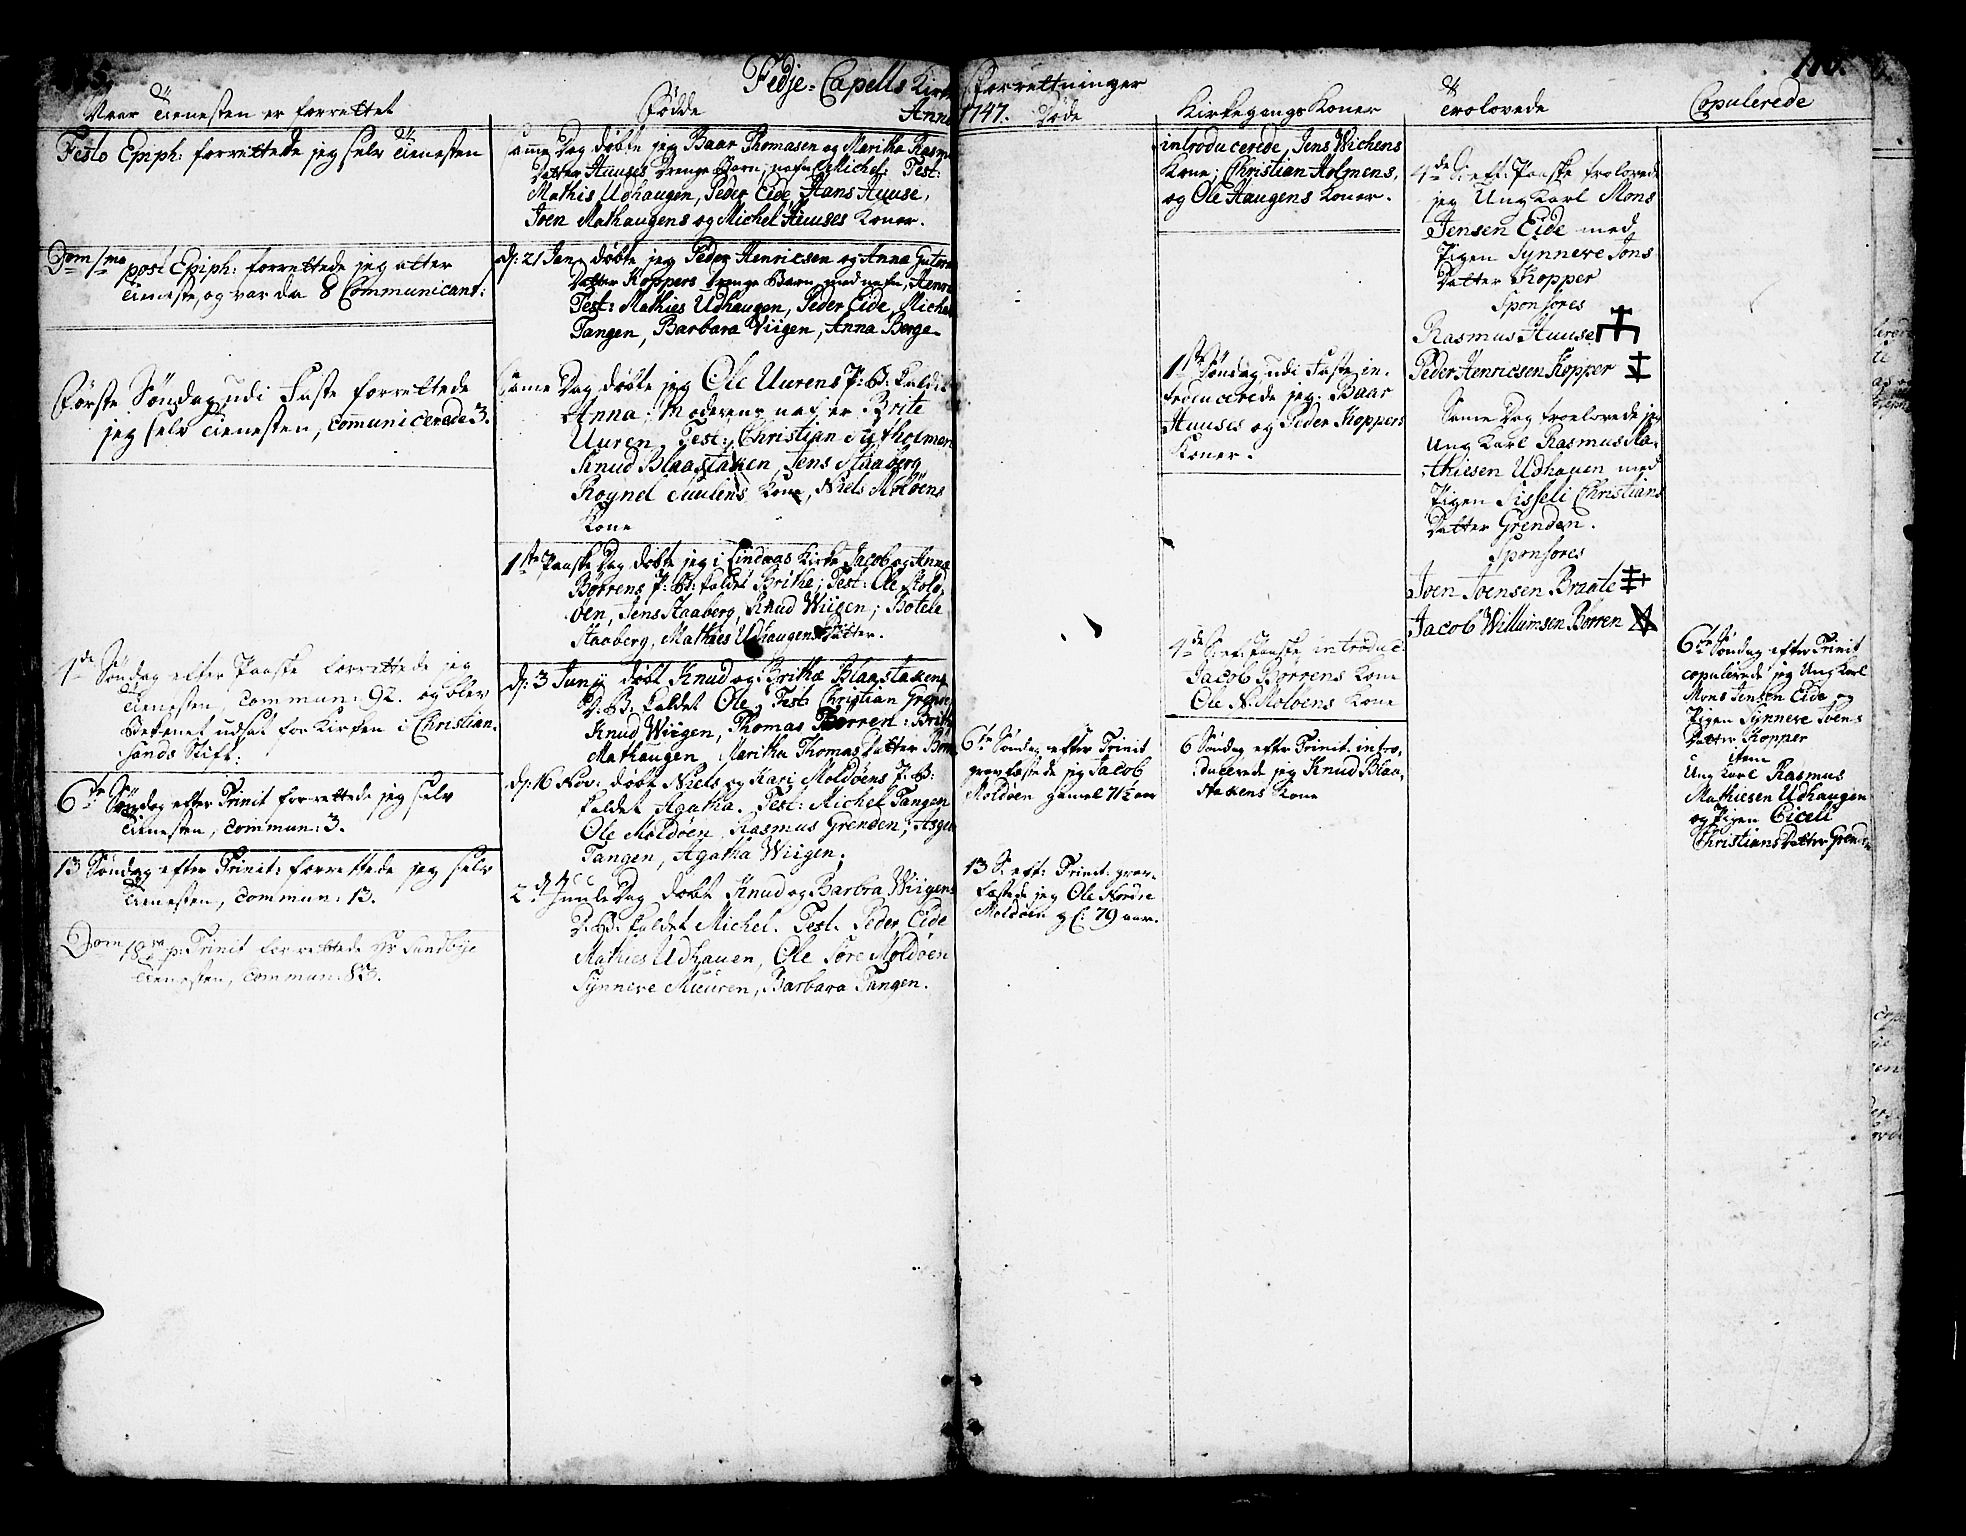 Fedje-Capells Kirke Forrettninger
Anno 1747.
Naar Tienesten er forrettet
Festo Epiph: forrettede jeg selv Tienesten
Dom 1ma post Epiph: forrettede jeg atter
Tieneste, og var da 8 Communicant:
Første Søndag udi Faste forrettede
jeg selv Tienesten, communicerede 3.
1de Søndag efter Paaske forrettede jeg
Tienesten, commun: 92. og blev
udsat for Kirken i Christian-
sands Stift.
6te Søndag efter Trinit forrettede jeg selv
Tienesten, commun: 3.
13 Søndag efter Trinit: forrettede jeg selv
Tienesten, commun: 13.
Dom 18va p: Trinit forrettede Hr Sundbye
Tienesten, commun: 83.
Fødde
Samme Dag døbte jeg Baar Thomasen og Maritha Rasmus
Datter Huuses Drenge Barn, nafn Michel: Test:
Mathis Udhaugen, Peder Eide, Hans Huuse,
Joen Mathaugens og Michel Huuses Koner.
d: 21 Jan: døbte jeg Peder Henricsen og Anna
Datter Koppers Drenge Barn med nafn, Henric
Test: Mathies Udhaugen, Peder Eide, Michel
Tangen, Barbara Wiigen, Anna Berge
Same Dag døbte jeg Ole Uurens P: B: kaldet
Anna: Moderens nafn er Brite
Uuren. Test: Christian Sytholmen
Knud Blaastaken, Jens Staaberg
Rognel Suulens Kone, Niels Moldøens
Kone
1ste Paaske Dag døbte jeg i Lindaas Kirke Jacob og Anna
Børrens P: B: kaldet Brithe; Test: Ole Mold-
øen, Jens Staaberg, Knud Wiigen; Botele
Staaberg, Mathies Udhaugens Datter.
d: 3 Junij døbt Knud og Brithæ Blaastakens
D: B: kaldet Ole, Test: Christian Grenden
Knud Wiigen, Thomas Børren: Brithe
Mathaugen, Maritha Thomas Datter
d: 16 Nov: døbt Niels og Kari Moldøens P: B:
kaldet Agatha. Test: Michel Tangen
Ole Moldøen, Rasmus Grenden;
Tangen, Agatha Wiigen.
2den Juule Dag døbt Knud og Barbra Wiigens
D: B: kaldet Michel. Test. Peder Eide
Mathies Udhauen, Ole Søre Moldøen
Synneve Muuren, Barbara Tangen.
Døde
6te Søndag efter Trinit
gravfæstede jeg Jacob
Moldøen gamel 71½ aar
13 S: eft: Trinit: grav-
fæstede jeg Ole Nordre
Moldøen gl: 79 aar.
Kirkegangs Koner
introducerede, Jens Wichens
Kone; Christian Holmens,
og Ole Haugens Koner.
1ste Søndag udi Faste in-
troducerede jeg Baar
Huuses og Peder Koppers
Koner.
1de S: ef: Paaske introduc:
Jacob Børrens Kone
Ole N: Moldøens Kone
6 Søndag efter Trinit: intro-
ducerede jeg Knud Blaa-
stakens Kone
Trolovede
1de S: eft: Paaske trolovede
jeg Ung Karl Mons
Jensen Eide med
Pigen Synneve Jons
Datter Kopper
Sponsores
Rasmus Huuse
Peder Henricsen Kopper
Same Dag troelovede jeg
Ung Karl Rasmus Ma-
thiesen Udhauen med
Pigen Sisseli Christians
Datter Grenden.
Sponsores
Joen Joensen Braate
Jacob Willumsen Børren
Copulerede
6te Søndag efter Trinit
copulerede jeg Ung Karl
Mons Jensen Eide og
Pigen Synneve Joens
Datter Kopper
item
Ung Karl Rasmus
Mathiesen Udhaugen
og Pigen Ciceli
Christians Datter Grenden